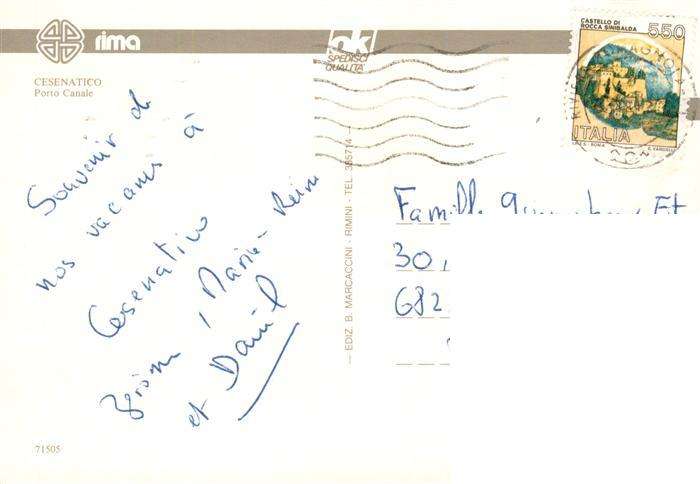 rima
CESENATICO
Porto Canale
SPEDISCI
QUALITÀ
CASTELLO DI
ROCCA SINIBALDA
550
ITALIA
I.P.Z.S. - ROMA
Souvenir de
nos vacances à
Cesenatico
Jérôme, Marie-Reine
et Daniel
EDIZ. B. MARCACCINI - RIMINI - TEL.
Famille
30,
682
71505